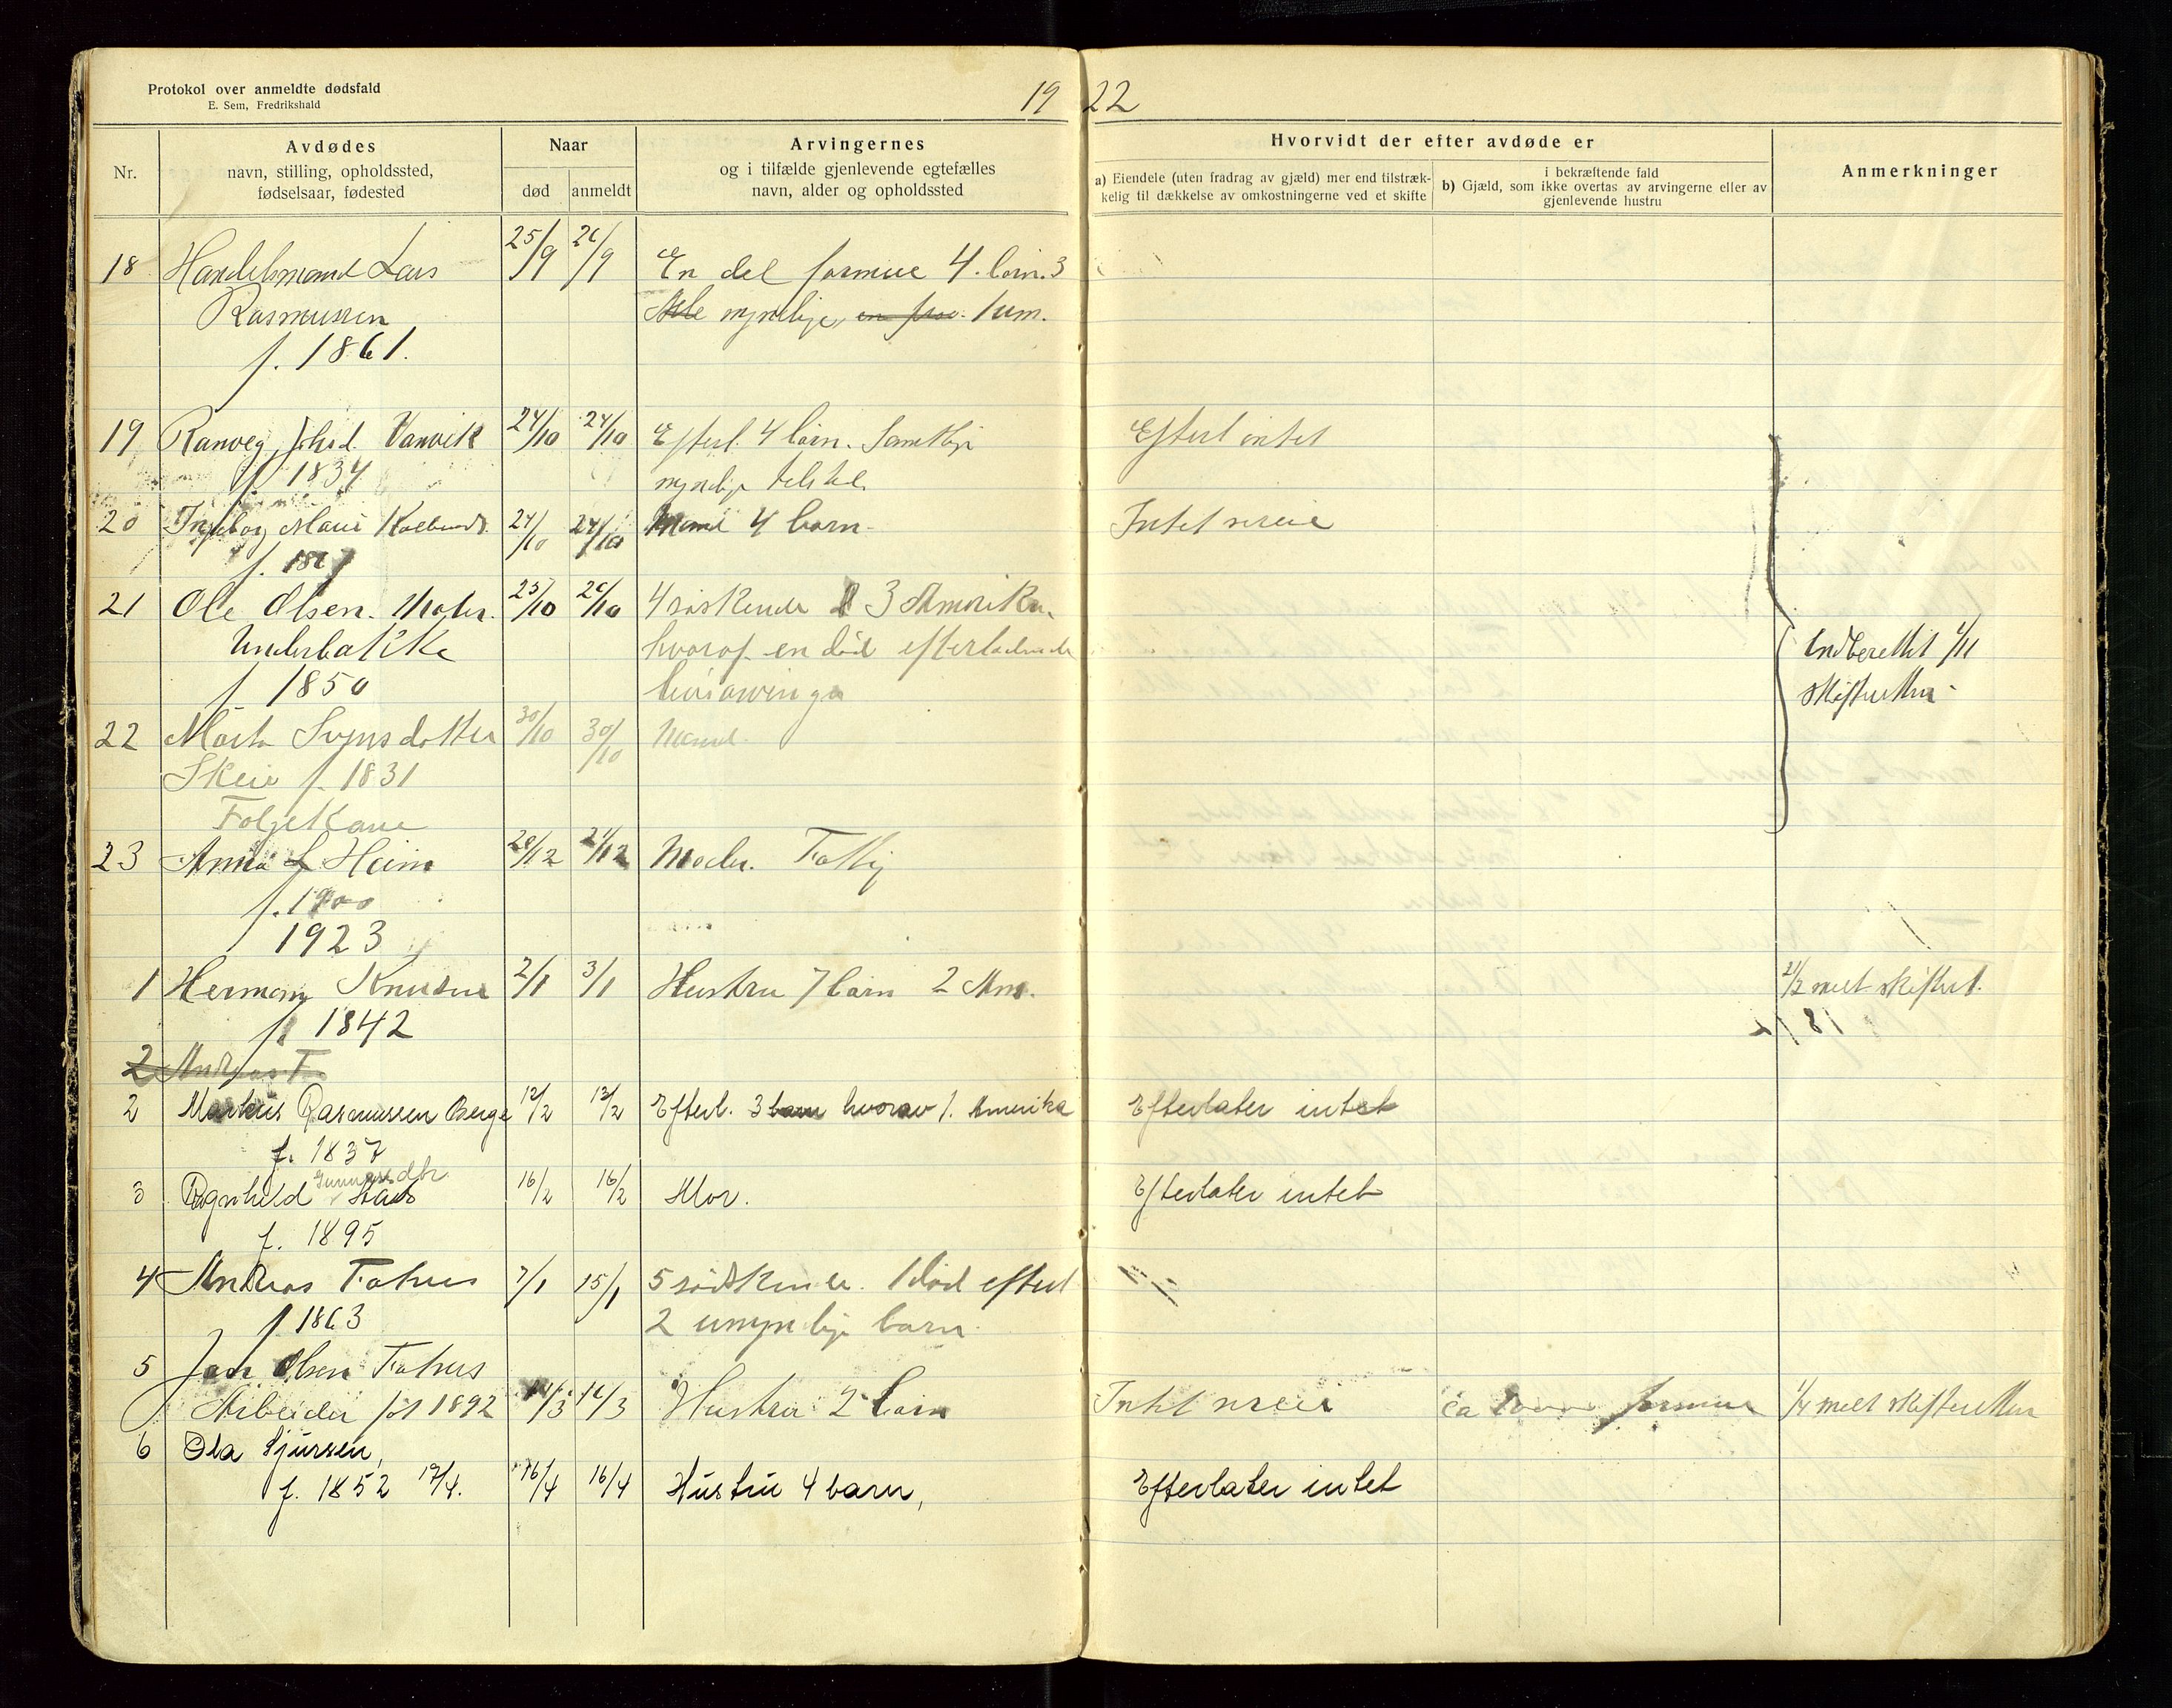 Protokol over anmeldte dødsfald
E. Sem, Fredrikshald
1922
Nr.
Avdødes
navn, stilling, opholdssted,
fødselsaar, fødested
Naar
død anmeldt
Arvingernes
og i tilfælde gjenlevende egtefælles
navn, alder og opholdssted
Hvorvidt der efter avdøde er
a) Eiendele (uten fradrag av gjæld) mer end tilstræk-
kelig til dækkelse av omkostningerne ved et skifte
i bekræftende fald
b) Gjæld, som ikke overtas av arvingerne eller av
gjenlevende hustru
Anmerkninger
18 Handelsmand Lars 25/9 26/9 En del formue 4 børn. 3
Rasmussen Alle myndige, 1 um.
f. 1861.
19 Ranveg Vanvik 24/10 24/10 Efterl. 4 børn. Samtlige Efterl intet
f 1834 myndige
20 Ingebor Marie 24/10 24/10 Mand 4 børn Intet
f.
21 Ole Olsen 25/10 26/10 4 søskende 3 Amerika,
Underbakke hvoraf en død efterladende
f 1850 livsarvinger
Indberettet 1/11
skifteretten
22 Marta Svensdatter 30/10 30/10 Mand
Skeie f. 1831
Folgekane
23 Anna Heim 20/12 21/12 Moder. Fattig
f. 1900
1923
1 Herman Knutsen 2/1 3/1 Hustru 7 børn 2 Am. 2/2 melt skifteret.
f 1842
2 Andreas T
2 Markus Rasmussen Berge 12/2 12/2 Efterl. 3 barn hvorav 1. Amerika Efterlater intet
f. 1837
Gunnarsdtr
3 Ragnhild 16/2 16/2 Mor. Efterlater intet
f. 1895
4 Andreas Fatnes 7/1 15/1 5 sødskende. 1 død efterl
f 1863 2 umyndige barn
5 Jon Olsen Fatnes
Arbeider føt 1892 14/3 Hustru 2 børn Intet ca formue 1/4 melt skifteretten
6 Ola Sjursen,
f. 1852 17/4. 16/4 16/4 Hustru 4 barn, Efterlater intet